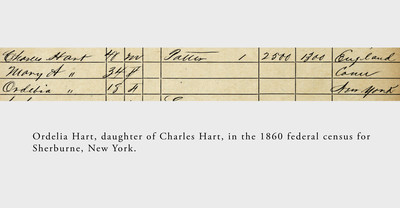 Charles Hart 48 m 1 2500 1300 England
Mary A " 34 f Conn
Ordelia " 15 f New York
Ordelia Hart, daughter of Charles Hart, in the 1860 federal census for
Sherburne, New York.